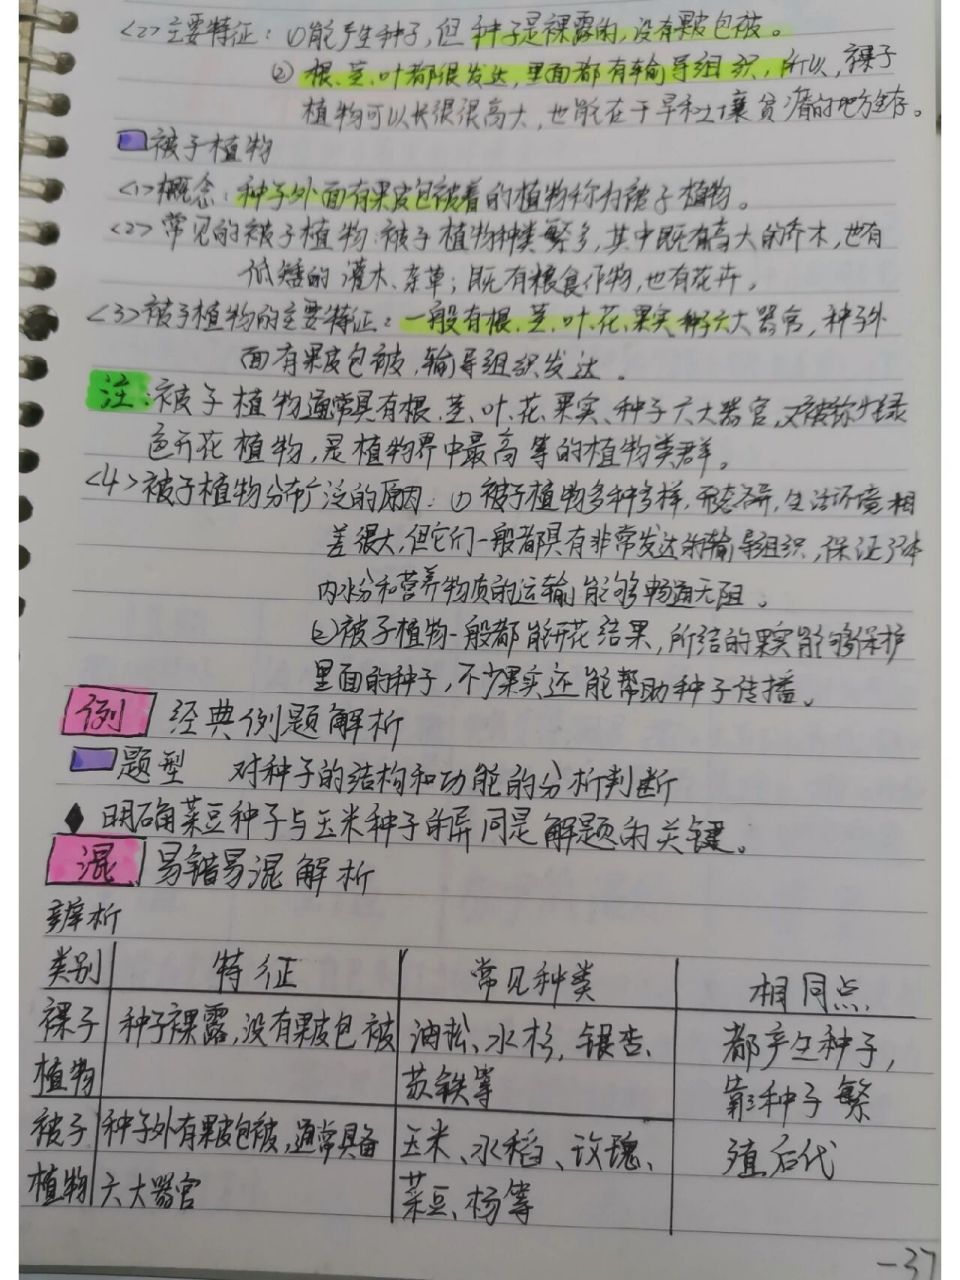 <2>主要特征：①能产生种子，但种子是裸露的，没有果皮包被。
② 根、茎、叶都很发达，里面都有输导组织，所以，裸子
植物可以长得很高大，也能在干旱和土壤贫瘠的地方生存。
被子植物
<1>概念：种子外面有果皮包被着的植物称为被子植物。
<2>常见的被子植物：被子植物种类繁多，其中既有高大的乔木，也有
低矮的灌木、杂草；既有粮食作物，也有花卉。
<3>被子植物的主要特征：一般有根、茎、叶、花、果实、种子六大器官，种子外
面有果皮包被，输导组织发达。
注：被子植物通常具有根、茎、叶、花、果实、种子六大器官，又被称为绿
色开花植物，是植物界中最高等的植物类群。
<4>被子植物分布广泛的原因：① 被子植物多种多样，形态各异，生活环境相
差很大，但它们一般都具有非常发达的输导组织，保证了体
内水分和营养物质的运输能够畅通无阻。
②被子植物一般都能开花结果，所结的果实能够保护
里面的种子，不少果实还能帮助种子传播。
例 经典例题解析
题型 对种子的结构和功能的分析判断
♦ 明确菜豆种子与玉米种子的异同是解题的关键。
混 易错易混解析
辨析
类别 特征 常见种类 相同点
裸子 种子裸露，没有果皮包被 油松、水杉，银杏、 都产生种子，
植物 苏铁等 靠种子繁
被子 种子外有果皮包被，通常具备 玉米、水稻、玫瑰、 殖后代
植物 六大器官 菜豆、杨等
-37